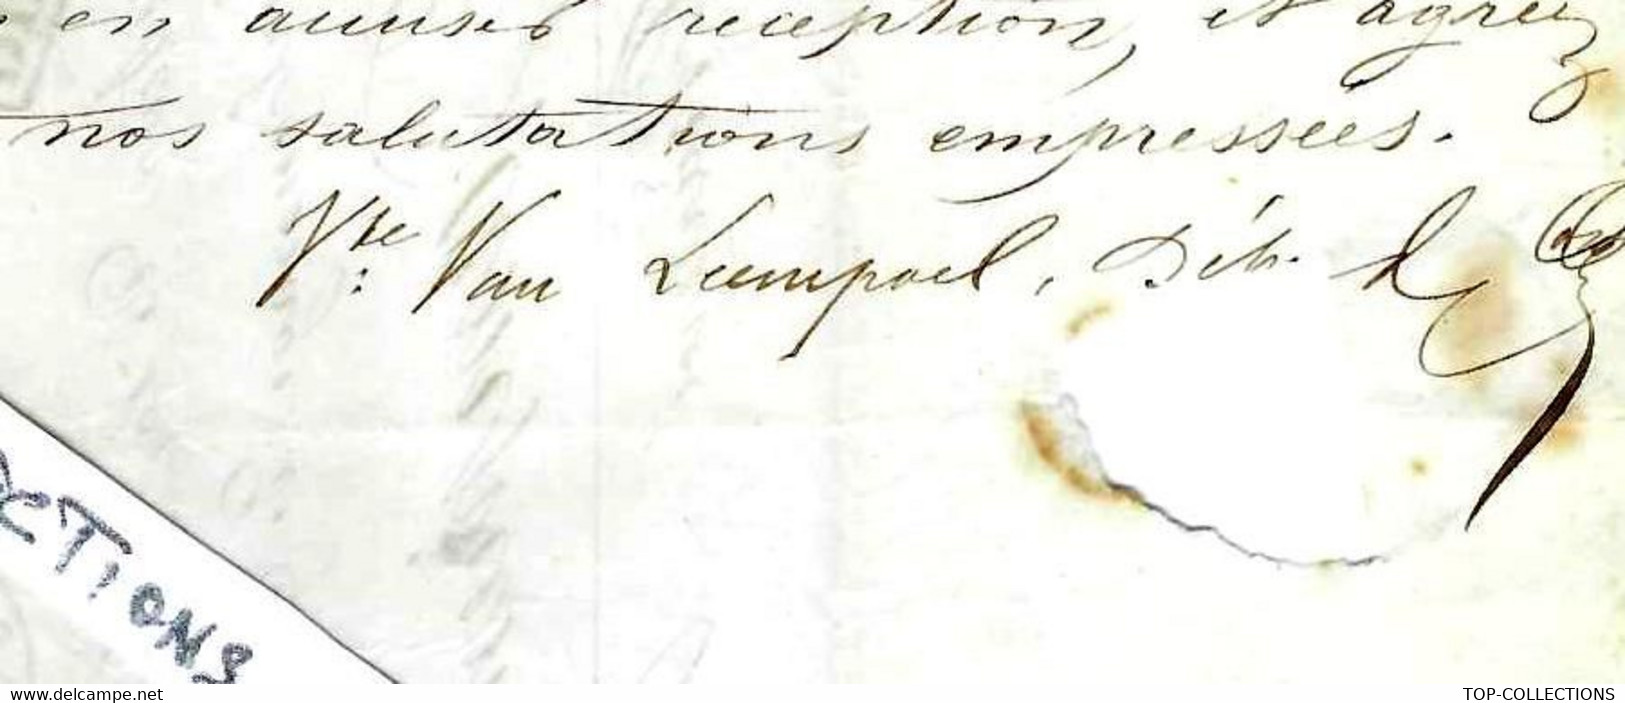 en accuser réception, et agréez
nos salutations empressées.
Vve Van Lempoel, Déb. d
CTIONS
www.delcampe.net
TOP-COLLECTIONS